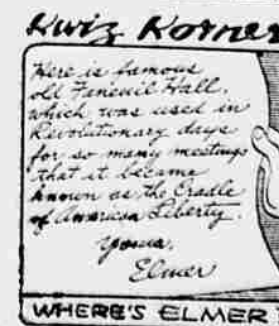 Kwiz Korner
Here is famous
old Faneuil Hall,
which was used in
Revolutionary days
for so many meetings
that it became
known as the Cradle
of American Liberty.
Yours,
Elmer
WHERE'S ELMER